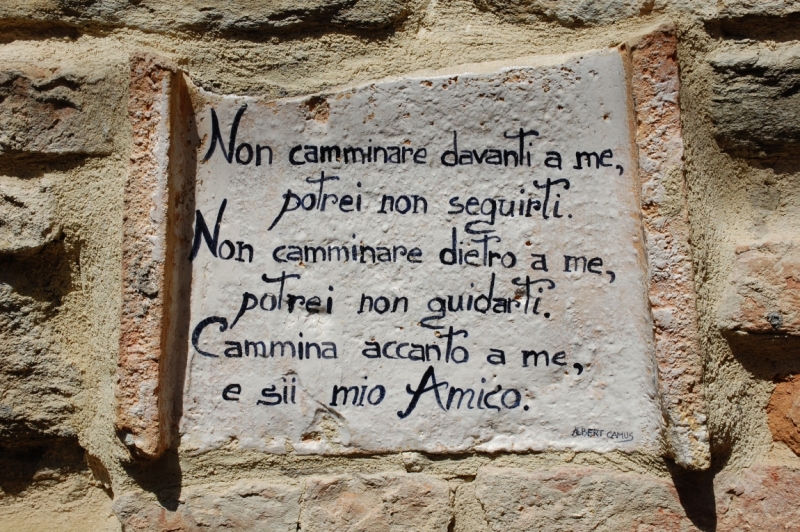 Non camminare davanti a me,
potrei non seguirti.
Non camminare dietro a me,
potrei non guidarti.
Cammina accanto a me,
e sii mio Amico.
ALBERT CAMUS